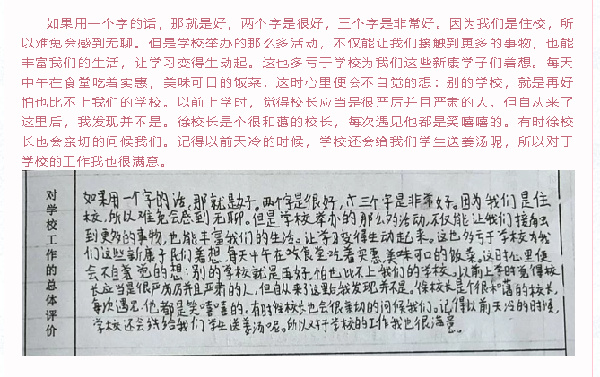 如果用一个字的话，那就是好，两个字是很好，三个字是非常好。因为我们是住校，所
以难免会感到无聊。但是学校举办的那么多活动，不仅能让我们接触到更多的事物，也能
丰富我们的生活，让学习变得生动起来。这也多亏于学校为我们这些新康学子们着想。每天
中午在食堂吃着实惠，美味可口的饭菜，这时心里便会不自觉的想：别的学校，就是再好
怕也比不上我们的学校。以前上学时，觉得校长应当是很严厉并且严肃的人，但自从来了
这里后，我发现并不是。徐校长是个很和蔼的校长，每次遇见他都是笑嘻嘻的。有时徐校
长也会亲切的问候我们。记得以前天冷的时候，学校还会给我们学生送姜汤呢，所以对于
学校的工作我也很满意。
对学校工作的总体评价
如果用一个字的话,那就是好。两个字是很好,三个字是非常好。因为我们是住
校,所以难免会感到无聊。但是学校举办的那么多活动,不仅能让我们接触
到更多的事物,也能丰富我们的生活。让学习变得生动起来。这也多亏于学校为我
们这些新康子民们着想。每天中午在食堂吃着实惠,美味可口的饭菜。这时心里便
会不自觉的想:别的学校就是再好,怕也比不上我们的学校。以前上学时觉得校
长应当是很严厉并且严肃的人,但自从来了这里后,我发现并不是。徐校长是个很和蔼的校长,
每次遇见他都是笑嘻嘻的,有时徐校长也会很亲切的问候我们。记得以前天冷的时候,
学校还会给我们学生送姜汤呢。所以对于学校的工作我也很满意。